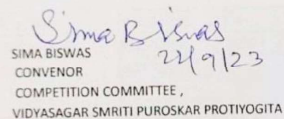 Sima Biswas
22/9/23
SIMA BISWAS
CONVENOR
COMPETITION COMMITTEE ,
VIDYASAGAR SMRITI PUROSKAR PROTIYOGITA